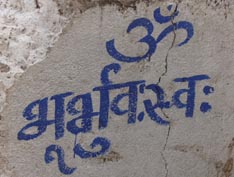 ॐ
भूर्भुवःस्वः